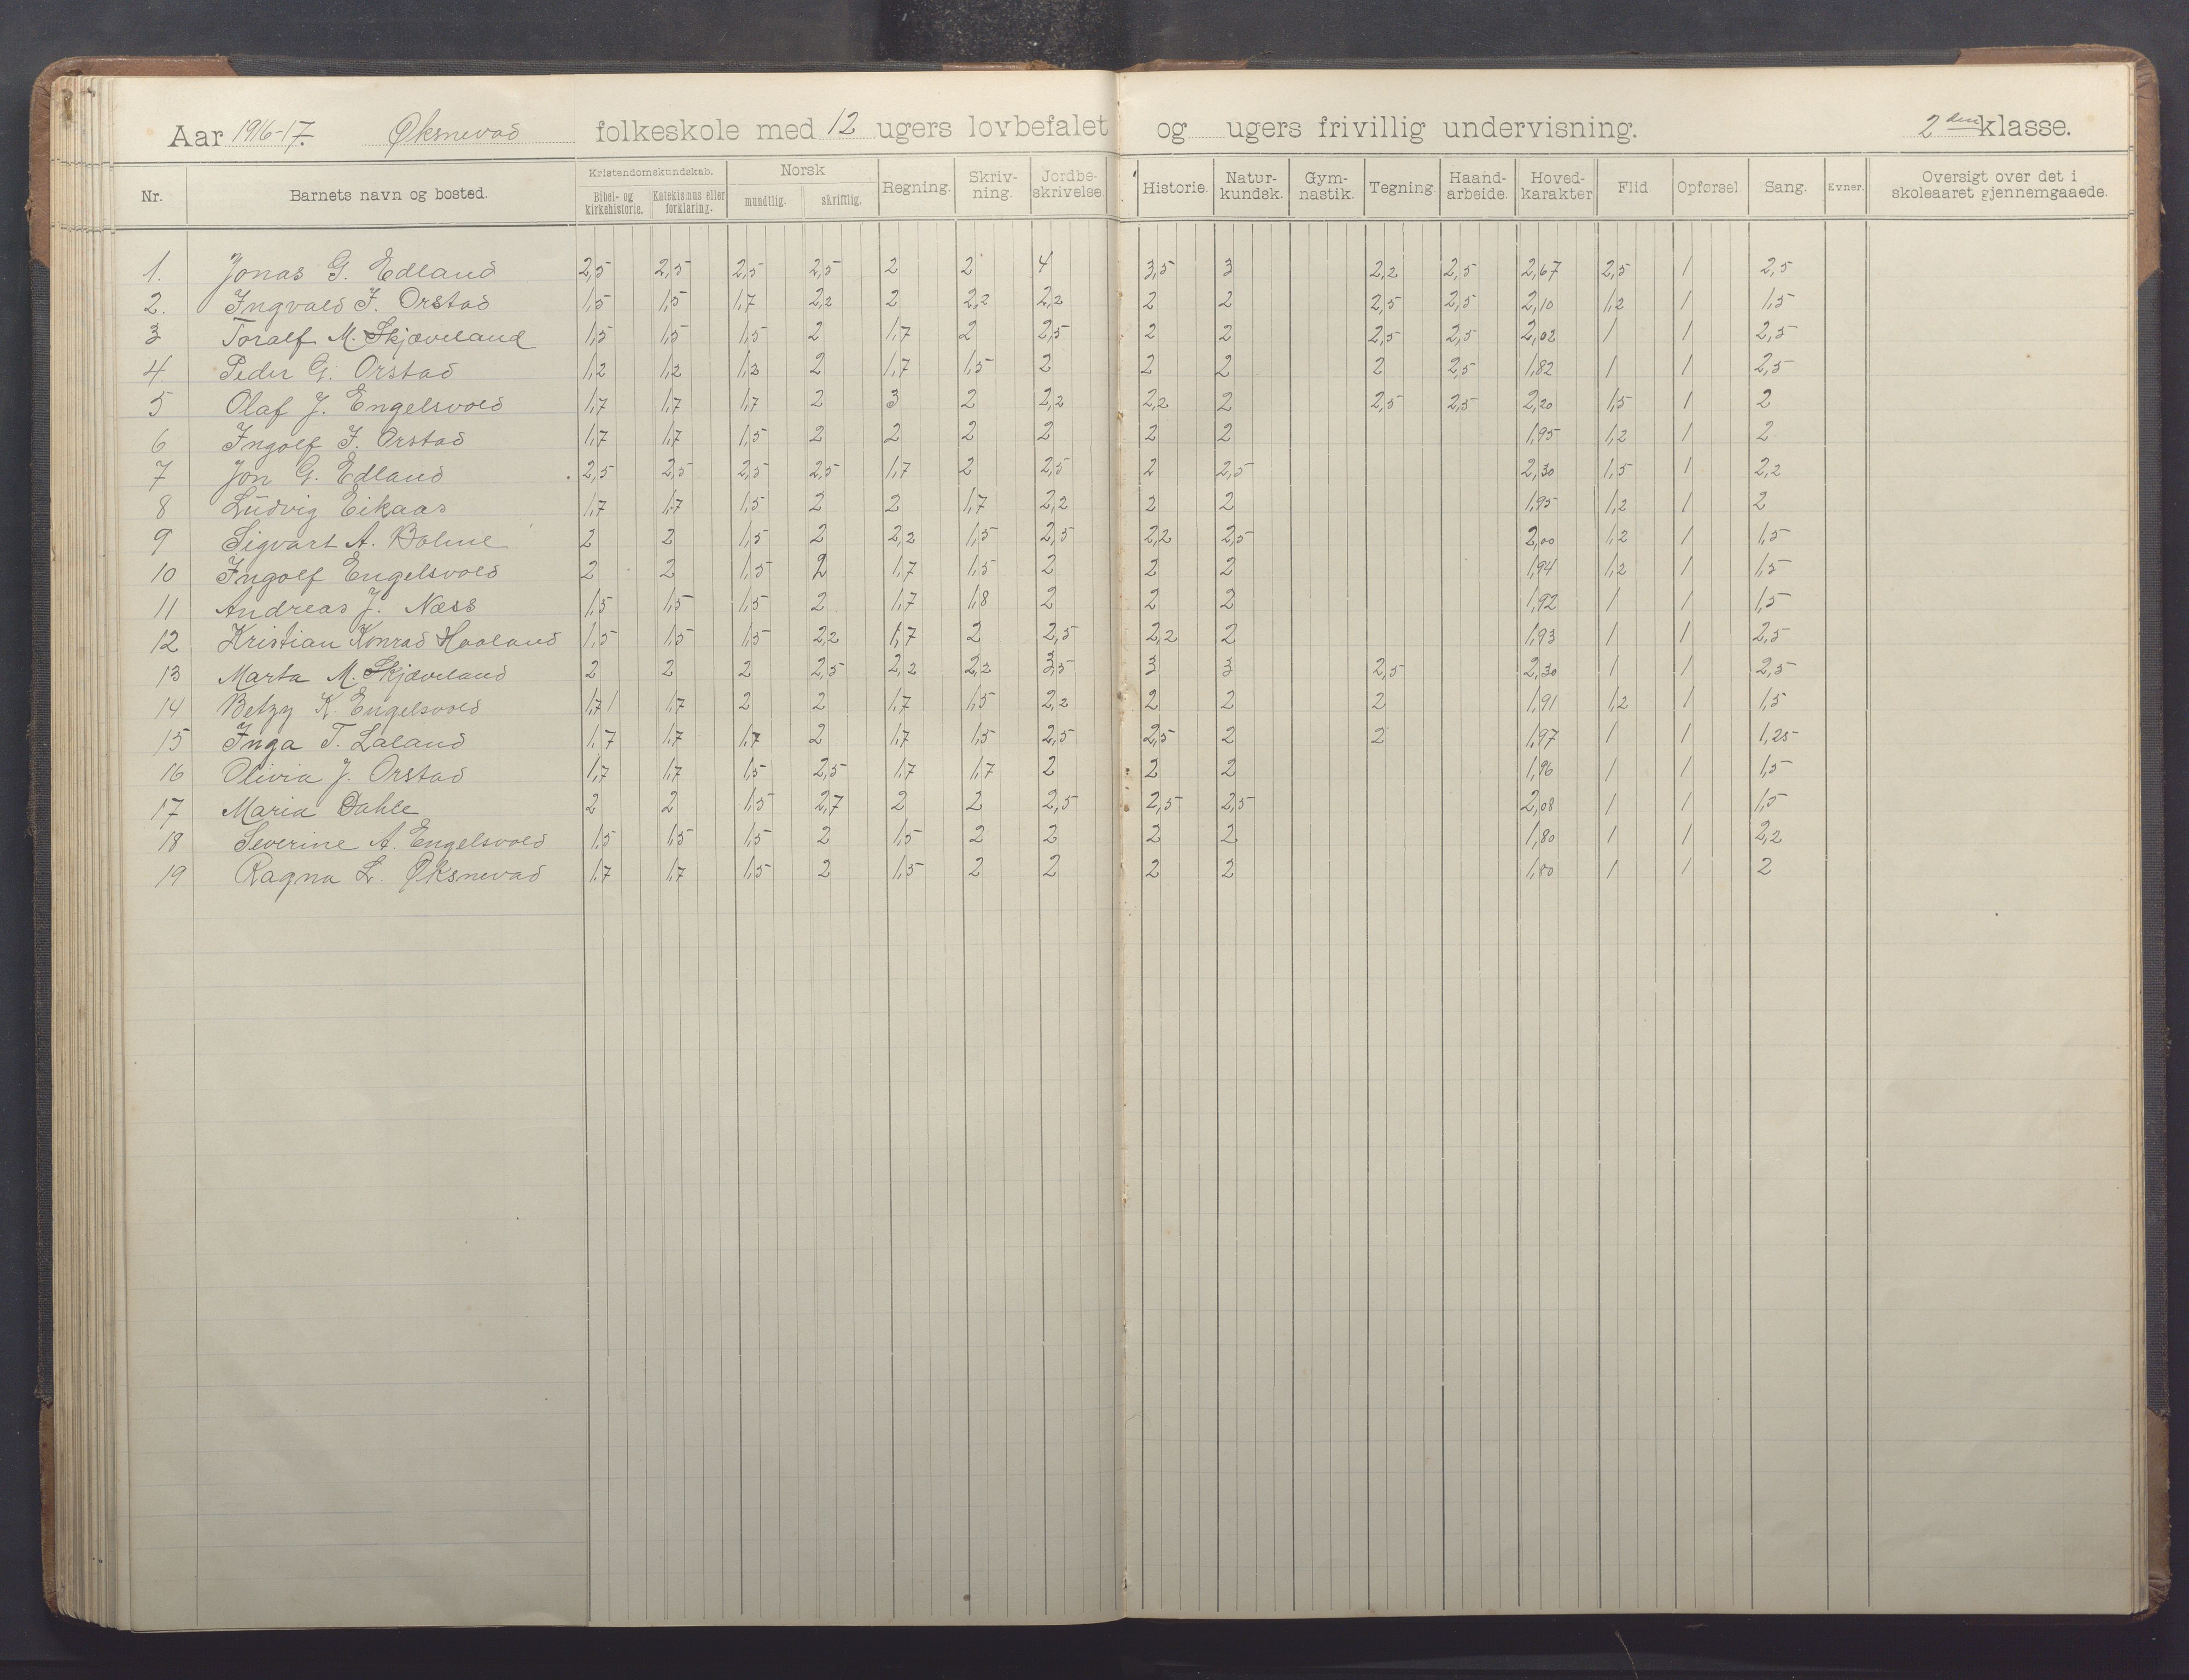 Aar 1916-17. Øksnevad folkeskole med 12 ugers lovbefalet og ugers frivillig undervisning. 2den klasse.
Nr. Barnets navn og bosted. Kristendomskundskab. Bibel- og kirkehistorie. Katekismus eller forklaring. Norsk mundtlig. skriftlig. Regning. Skriv-ning. Jordbe-skrivelse. Historie. Natur-kundsk. Gym-nastik. Tegning. Haand-arbeide. Hoved-karakter Flid Opførsel Sang. Evner. Oversigt over det i skoleaaret gjennemgaaede.
1. Jonas G. Edland 2,5 2,5 2,5 2,5 2 2 4 3,5 3 2,2 2,5 2,67 2,5 1 2,5
2. Ingvald F. Orstad 1,5 1,5 1,7 2,2 2 2,2 2,2 2 2 2,5 2,5 2,10 1,2 1 1,5
3 Toralf M. Skjæveland 1,5 1,5 1,5 2 1,7 2 2,5 2 2 2,5 2,5 2,02 1 1 2,5
4. Peder G. Orstad 1,2 1,2 1,2 2 1,7 1,5 2 2 2 2 2,5 1,82 1 1 2,5
5 Olaf J. Engelsvold 1,7 1,7 1,7 2 3 2 2,2 2,2 2 2,5 2,5 2,20 1,5 1 2
6 Ingolf F. Orstad 1,7 1,7 1,5 2 2 2 2 2 2 1,95 1,2 1 2
7 Jon G. Edland 2,5 2,5 2,5 2,5 1,7 2 2,5 2 2,5 2,30 1,5 1 2,2
8 Ludvig Eikaas 1,7 1,7 1,5 2 2 1,7 2,2 2 2 1,95 1,2 1 2
9 Sigvart A. Bolme 2 2 1,5 2 2,2 1,5 2,5 2,2 2,5 2,00 1,2 1 1,5
10 Ingolf Engelsvold 2 2 1,5 2 1,7 1,5 2 2 2 1,94 1,2 1 1,5
11 Andreas J. Næss 1,5 1,5 1,5 2 1,7 1,8 2 2 2 1,92 1 1 1,5
12 Kristian Konrad Haaland 1,5 1,5 1,5 2,2 1,7 2 2,5 2,2 2 1,93 1 1 2,5
13 Marta M. Skjæveland 2 2 2 2,5 2,2 2,2 3,5 3 3 2,5 2,30 1 1 2,5
14 Betzy K. Engelsvold 1,7 1,7 2 2 1,7 1,5 2,2 2 2 2 1,91 1,2 1 1,5
15 Inga T. Laland 1,7 1,7 1,7 2 1,7 1,5 2,5 2,5 2 2 1,97 1 1 1,25
16 Olivia J. Orstad 1,7 1,7 1,5 2,5 1,7 1,7 2 2 2 1,96 1 1 1,5
17 Maria Dahle 2 2 1,5 2,7 2 2 2,5 2,5 2,5 2,08 1 1 1,5
18 Severine A. Engelsvold 1,5 1,5 1,5 2 1,5 2 2 2 2 1,80 1 1 2,2
19 Ragna L. Øksnevad 1,7 1,7 1,5 2 1,5 2 2 2 2 1,80 1 1 2